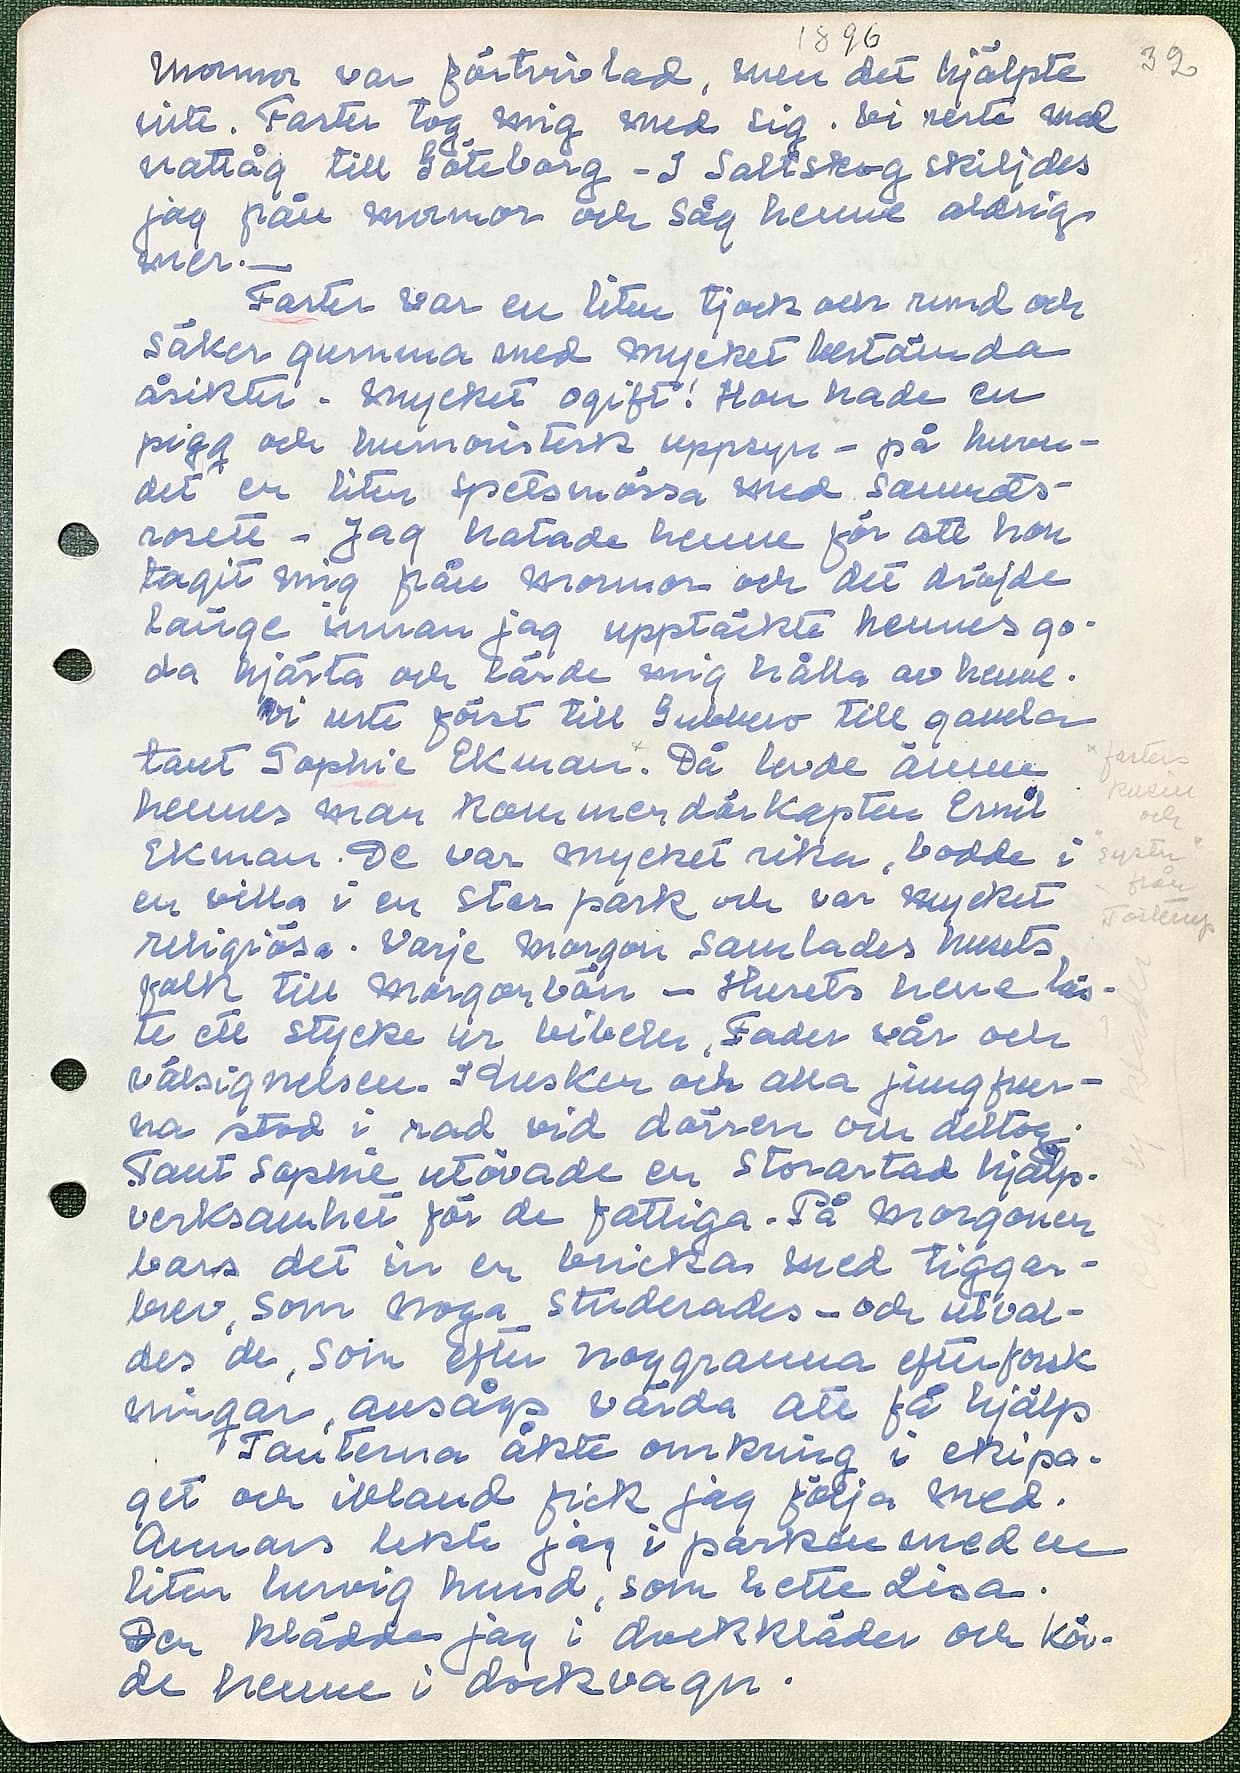 1896
32
Mormor var förtvivlad, men det hjälpte
inte. Faster tog mig med sig. Vi reste med
nattåg till Göteborg - I Saltskog skiljdes
jag från mormor och såg henne aldrig
mer. —
Faster var en liten tjock och rund och
säker gumma med mycket bestämda
åsikter - mycket ogift! Hon hade en
pigg och humoristisk uppsyn - på huvu-
det en liten spetsmössa med sammets-
rosett - Jag hatade henne för att hon
tagit mig från mormor och det dröjde
länge innan jag upptäckte hennes go-
da hjärta och lärde mig hålla av henne.
Vi reste först till Gubbero till gamla
tant Sophie Ekman.x Då levde ännu
hennes man kommendörkapten Emil
Ekman. De var mycket rika, bodde i
en villa i en stor park och var mycket
religiösa. Varje morgon samlades husets
folk till morgonbön - Husets herre läs-
te ett stycke ur bibeln, Fader vår och
välsignelsen. Husker och alla jungfrur-
na stod i rad vid dörren och deltog.
Tant Sophie utövade en storartad hjälp-
verksamhet för de fattiga. På morgonen
bars det in en bricka med tiggar-
brev, som noga studerades - och utval-
des de, som efter noggranna efterforsk
ningar, ansågs värda att få hjälp
Tanterna åkte omkring i ekipa-
get och ibland fick jag följa med.
Annars lekte jag i parken med en
liten lurvig hund, som hette Lisa.
Den klädde jag i dockkläder och kör-
de henne i dockvagn.
x fasters
kusin
och
"syster"
från
ny kläder